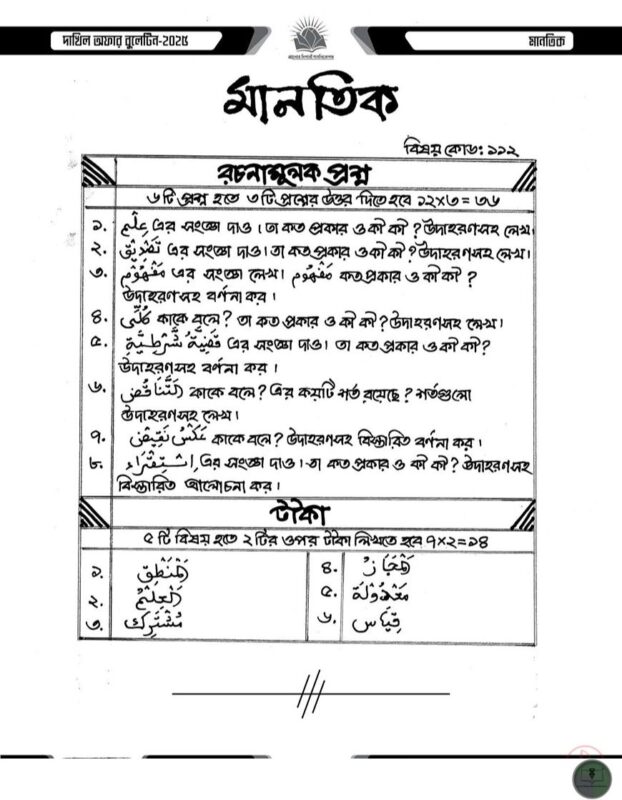 দাখিল অফার বুলেটিন-২০২৫
মানতিক
মানতিক
বিষয় কোড: ১১২
রচনামূলক প্রশ্ন
৬টি প্রশ্ন হতে ৩টি প্রশ্নের উত্তর দিতে হবে ১২×৩=৩৬
১. عِلْم এর সংজ্ঞা দাও। তা কত প্রকার ও কী কী? উদাহরণসহ লেখ।
২. تَصْدِيْق এর সংজ্ঞা দাও। তা কত প্রকার ও কী কী? উদাহরণসহ লেখ।
৩. مَفْهُوْم এর সংজ্ঞা লেখ। مَفْهُوْم কত প্রকার ও কী কী?
উদাহরণসহ বর্ণনা কর।
৪. كُلِّى কাকে বলে? তা কত প্রকার ও কী কী? উদাহরণসহ লেখ।
৫. قَضِيَّةٌ شَرْطِيَّةٌ এর সংজ্ঞা দাও। তা কত প্রকার ও কী কী?
উদাহরণসহ বর্ণনা কর।
৬. اَلتَّنَاقُضُ কাকে বলে? এর কয়টি শর্ত রয়েছে? শর্তগুলো
উদাহরণসহ লেখ।
৭. عَكْسُ نَقِيْضٍ কাকে বলে? উদাহরণসহ বিস্তারিত বর্ণনা কর।
৮. اِسْتِقْرَاء এর সংজ্ঞা দাও। তা কত প্রকার ও কী কী? উদাহরণসহ
বিস্তারিত আলোচনা কর।
টীকা
৫ টি বিষয় হতে ২ টির ওপর টীকা লিখতে হবে ৭×২=১৪
১. اَلْمَنْطِقُ
২. اَلْعِلْمُ
৩. مُشْتَرِك
৪. اَلْمَجَازُ
৫. مَعْدُوْلَة
৬. قِيَاس